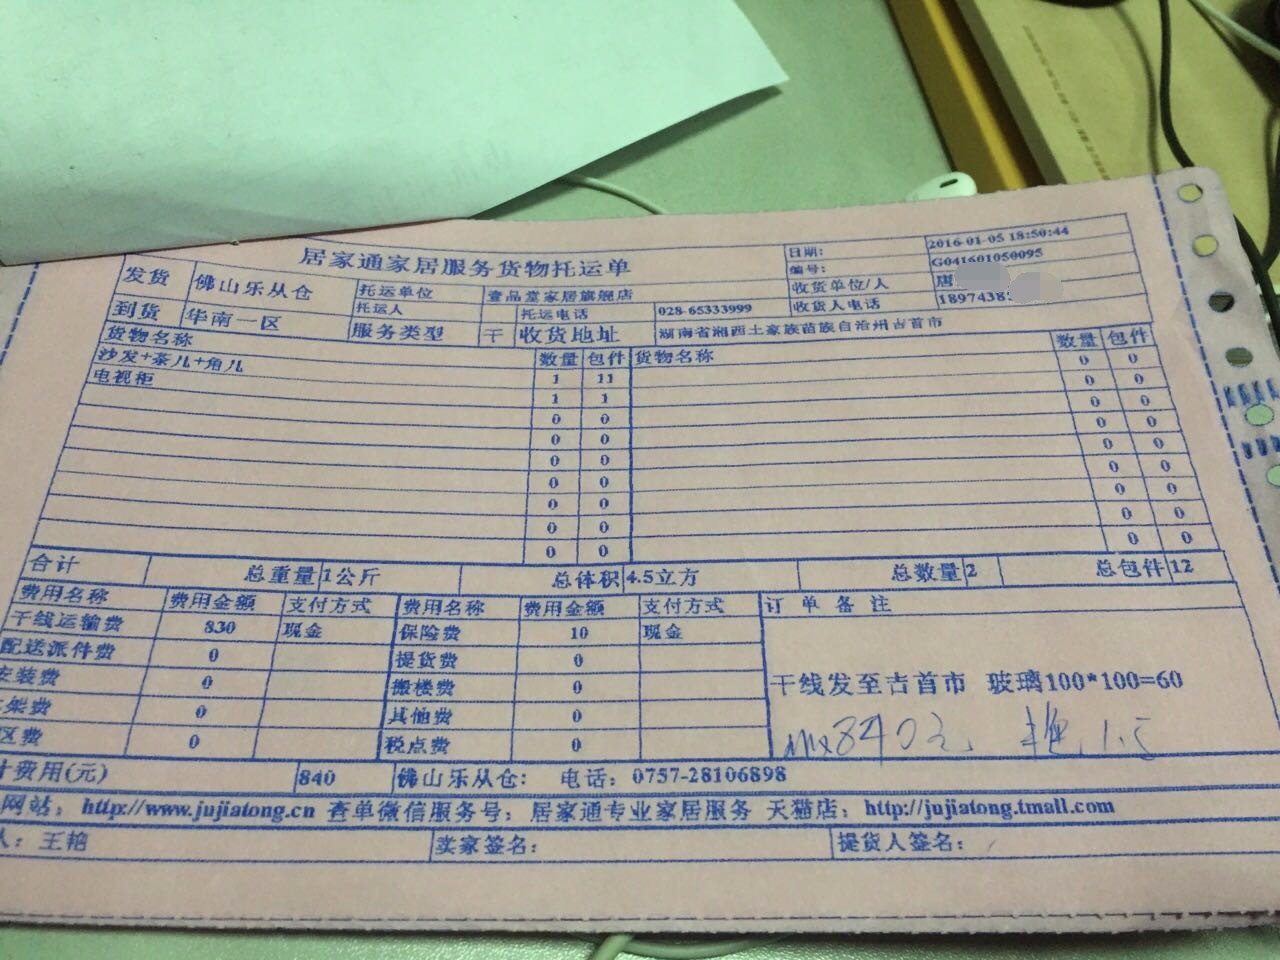 居家通家居服务货物托运单
日期: 2016-01-05 18:50:44
编号: G041601050095
发货 佛山乐从仓 托运单位 壹品堂家居旗舰店 收货单位/人 唐
到货 华南一区 托运人 托运电话 028-65333999 收货人电话 1897438
服务类型 干 收货地址 湖南省湘西土家族苗族自治州吉首市
货物名称 数量 包件 货物名称 数量 包件
沙发+茶几+角几 1 11 0 0
电视柜 1 1 0 0
0 0 0 0
0 0 0 0
0 0 0 0
0 0 0 0
0 0 0 0
0 0 0 0
0 0 0 0
0 0
合计 总重量 1公斤 总体积 4.5立方 总数量 2 总包件 12
费用名称 费用金额 支付方式 费用名称 费用金额 支付方式 订 单 备 注
干线运输费 830 现金 保险费 10 现金
配送派件费 0 提货费 0
安装费 0 搬楼费 0 干线发至吉首市 玻璃100*100=60
架费 0 其他费 0
区费 0 税点费 0
840元
计费用(元) 840 佛山乐从仓: 电话: 0757-28106898
网站: http://www.jujiatong.cn 查单微信服务号: 居家通专业家居服务 天猫店: http://jujiatong.tmall.com
人: 王艳 卖家签名: 提货人签名: